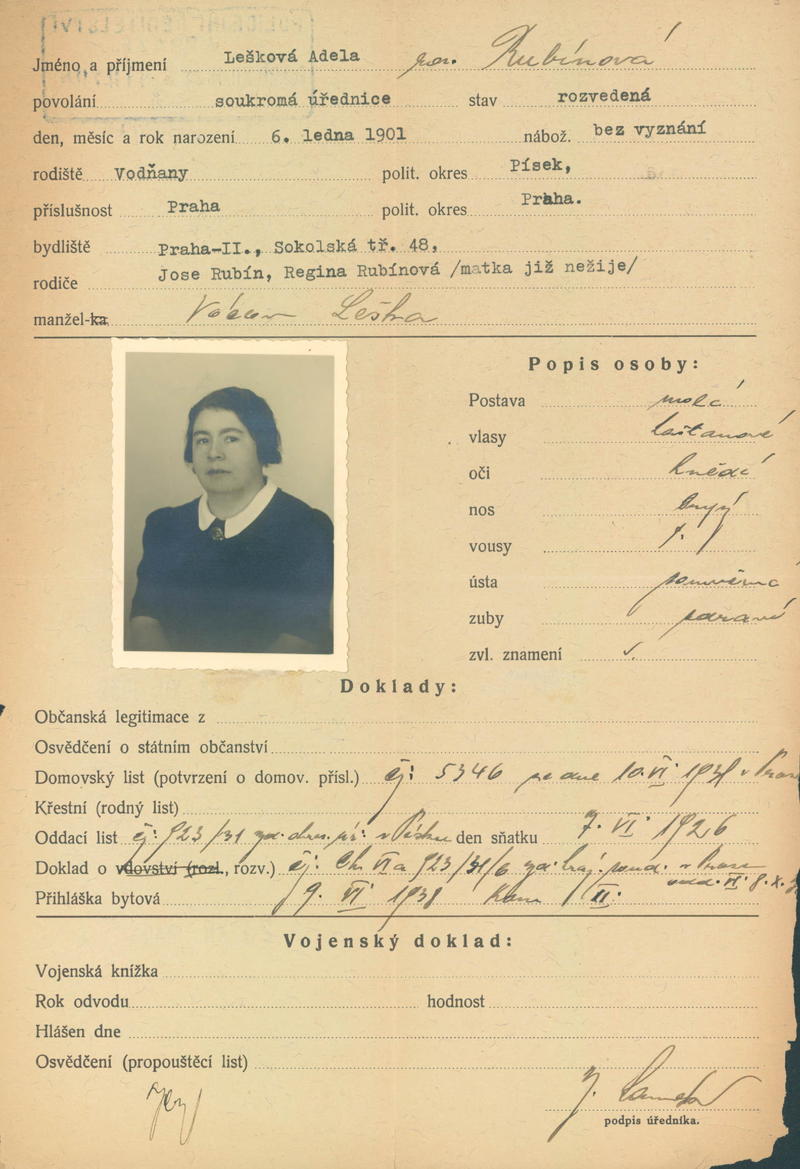 Jméno a příjmení Lešková Adela roz. Rubínová
povolání soukromá úřednice stav rozvedená
den, měsíc a rok narození 6. ledna 1901 nábož. bez vyznání
rodiště Vodňany polit. okres Písek,
příslušnost Praha polit. okres Praha.
bydliště Praha-II., Sokolská tř. 48,
rodiče Jose Rubín, Regina Rubínová /matka již nežije/
manžel-ka Václav Leška
Popis osoby:
Postava malá
vlasy kaštanové
oči hnědé
nos
vousy
ústa souměrná
zuby zdravé
zvl. znamení
Doklady:
Občanská legitimace z
Osvědčení o státním občanství
Domovský list (potvrzení o domov. přísl.) čj: 5346 ze dne 10.VI 1938 v Praze
Křestní (rodný list)
Oddací list čj: 923/31 v Písku den sňatku 7. VI. 1926
Doklad o vdovství (rozl., rozv.) čj: Ck VIa 923/31/6 v Praze
odd. VI. 8.X.
Přihláška bytová 9. VI 1938 II.
Vojenský doklad:
Vojenská knížka
Rok odvodu hodnost
Hlášen dne
Osvědčení (propouštěcí list)
podpis úředníka.